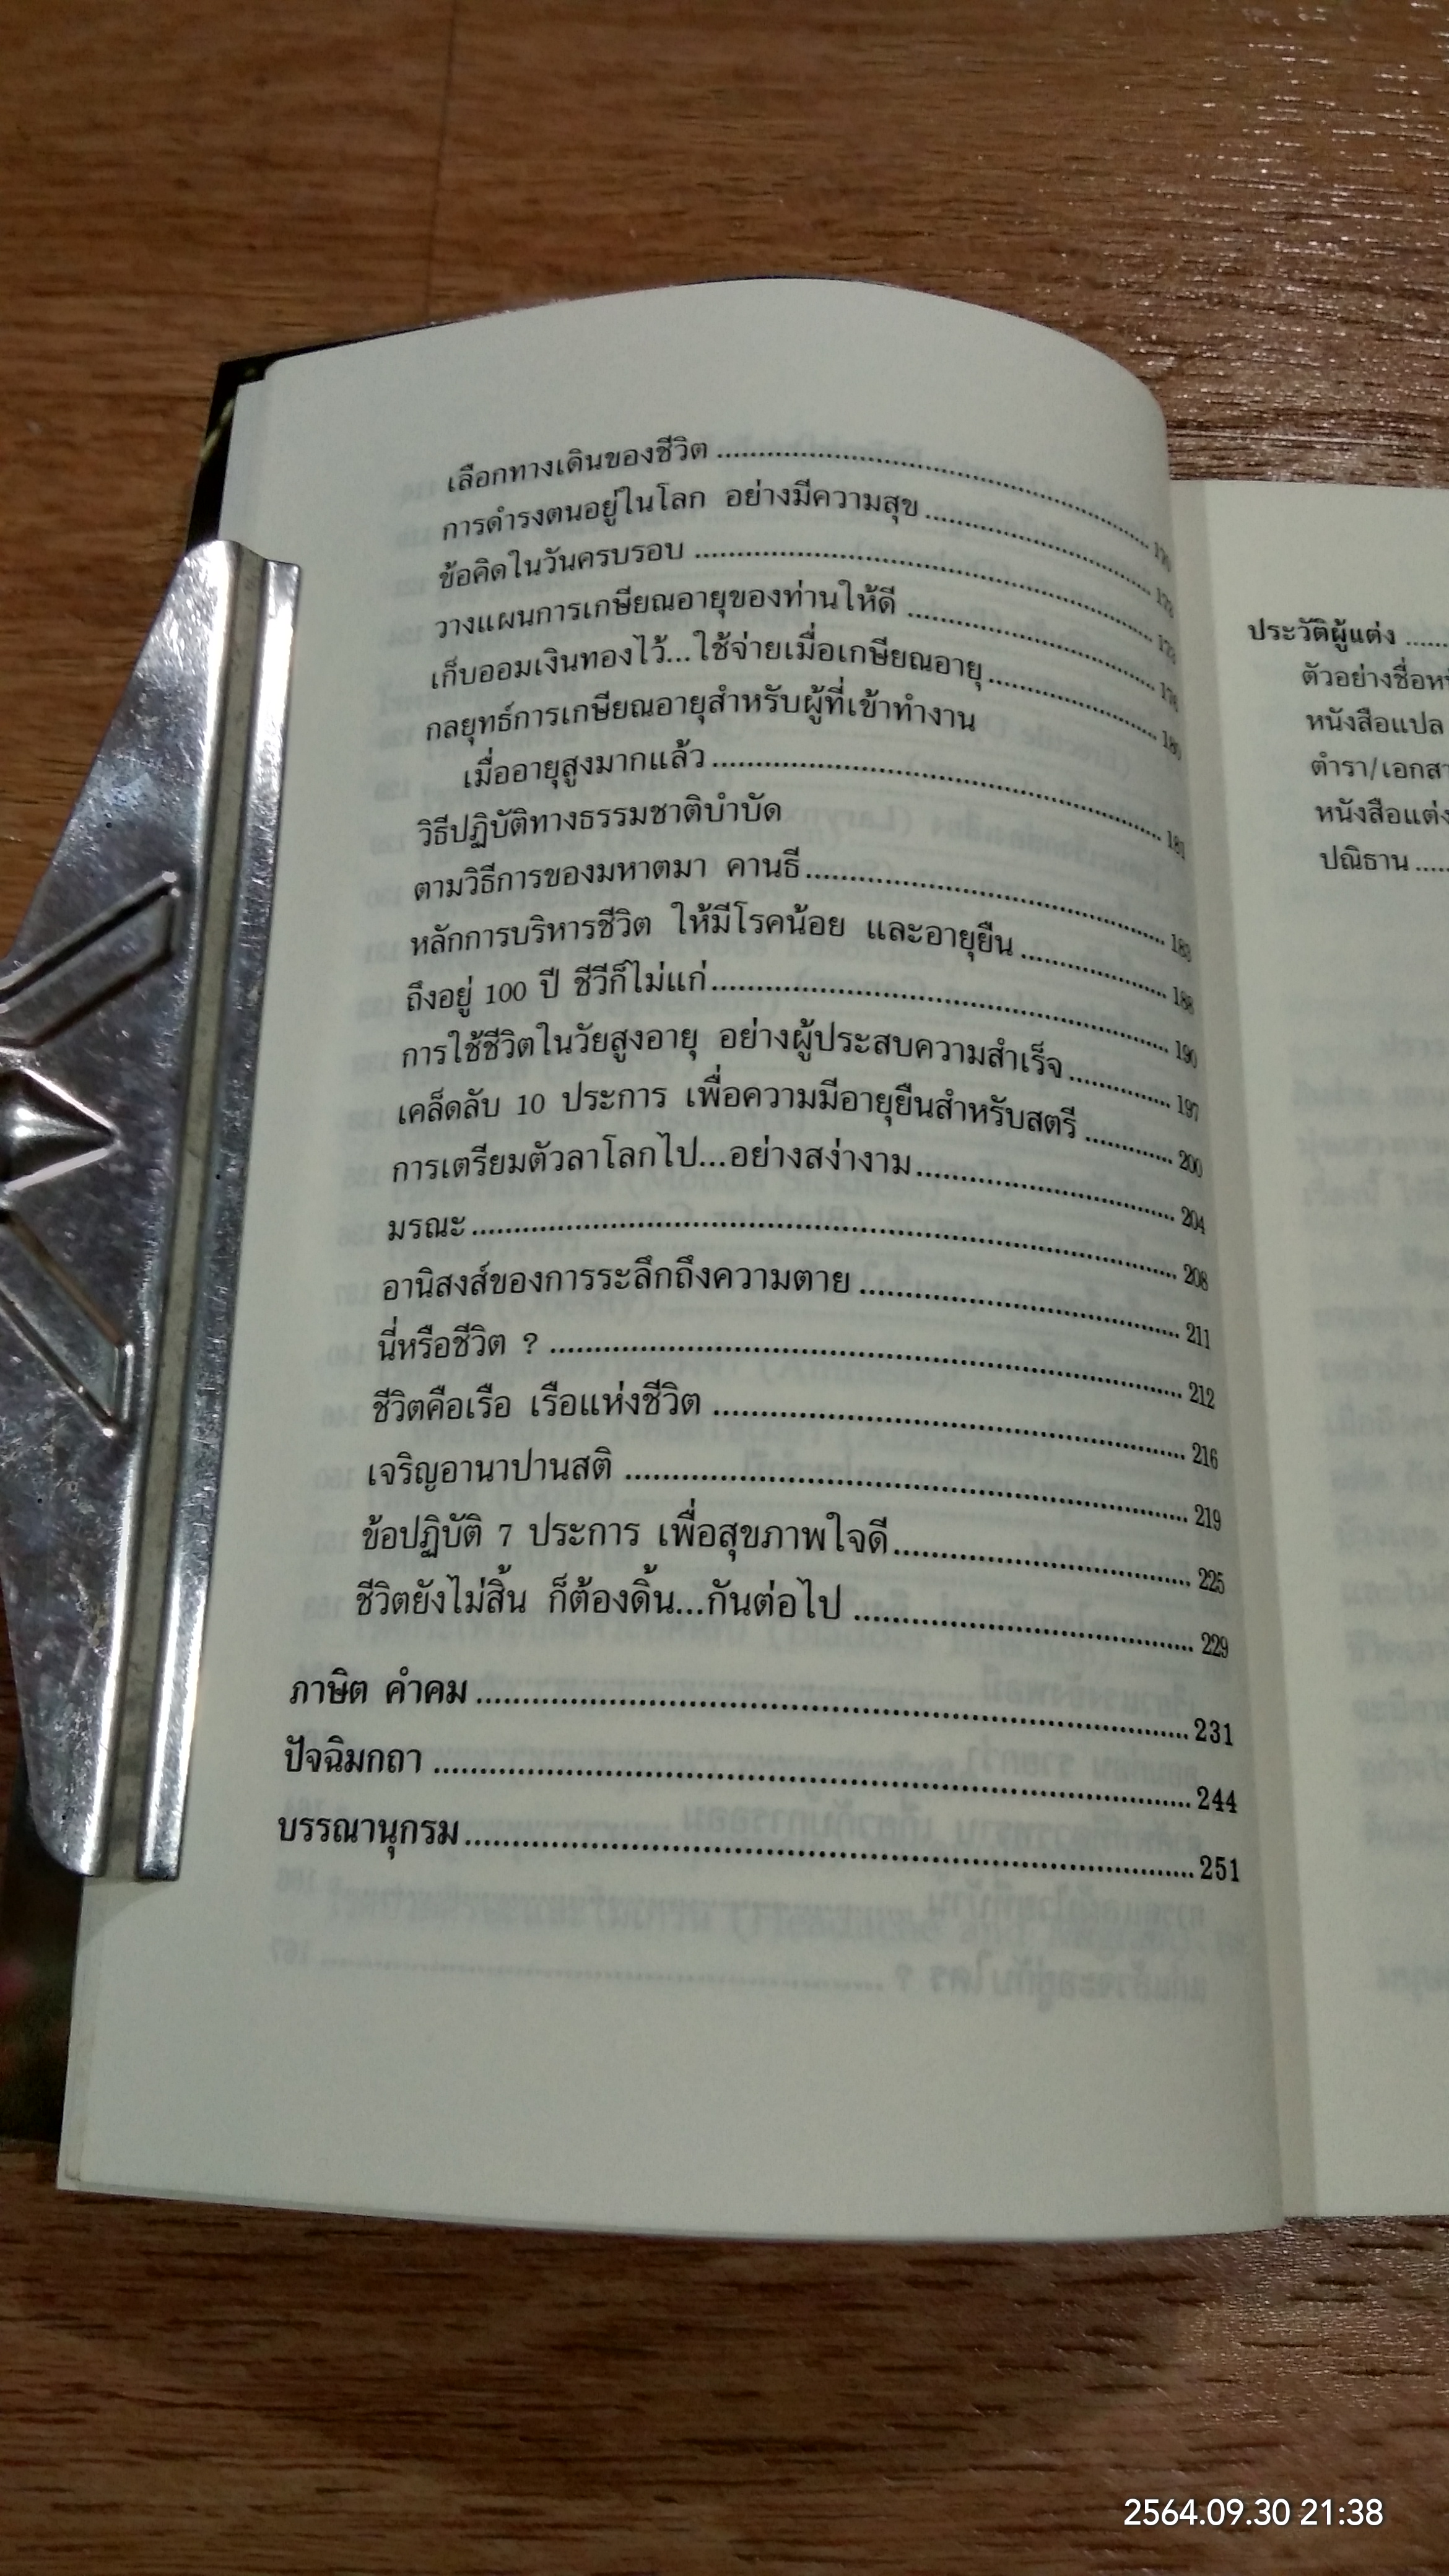 เลือกทางเดินของชีวิต ........................................
การดำรงตนอยู่ในโลก อย่างมีความสุข ........................................
ข้อคิดในวันครบรอบ ........................................
วางแผนการเกษียณอายุของท่านให้ดี ........................................
เก็บออมเงินทองไว้...ใช้จ่ายเมื่อเกษียณอายุ ........................................ 180
กลยุทธ์การเกษียณอายุสำหรับผู้ที่เข้าทำงาน
เมื่ออายุสูงมากแล้ว ........................................ 181
วิธีปฏิบัติทางธรรมชาติบำบัด
ตามวิธีการของมหาตมา คานธี ........................................ 183
หลักการบริหารชีวิต ให้มีโรคน้อย และอายุยืน ........................................ 188
ถึงอยู่ 100 ปี ชีวีก็ไม่แก่ ........................................ 190
การใช้ชีวิตในวัยสูงอายุ อย่างผู้ประสบความสำเร็จ ........................................ 197
เคล็ดลับ 10 ประการ เพื่อความมีอายุยืนสำหรับสตรี ........................................ 200
การเตรียมตัวลาโลกไป...อย่างสง่างาม ........................................ 204
มรณะ ........................................ 208
อานิสงส์ของการระลึกถึงความตาย ........................................ 211
นี่หรือชีวิต ? ........................................ 212
ชีวิตคือเรือ เรือแห่งชีวิต ........................................ 216
เจริญอานาปานสติ ........................................ 219
ข้อปฏิบัติ 7 ประการ เพื่อสุขภาพใจดี ........................................ 225
ชีวิตยังไม่สิ้น ก็ต้องดิ้น...กันต่อไป ........................................ 229
ภาษิต คำคม ........................................ 231
ปัจฉิมกถา ........................................ 244
บรรณานุกรม ........................................ 251
ประวัติผู้แต่ง ......
ตัวอย่างชื่อ
หนังสือแปล
ตำรา/เอกสา
หนังสือแต่ง
ปณิธาน .....
2564.09.30 21:38